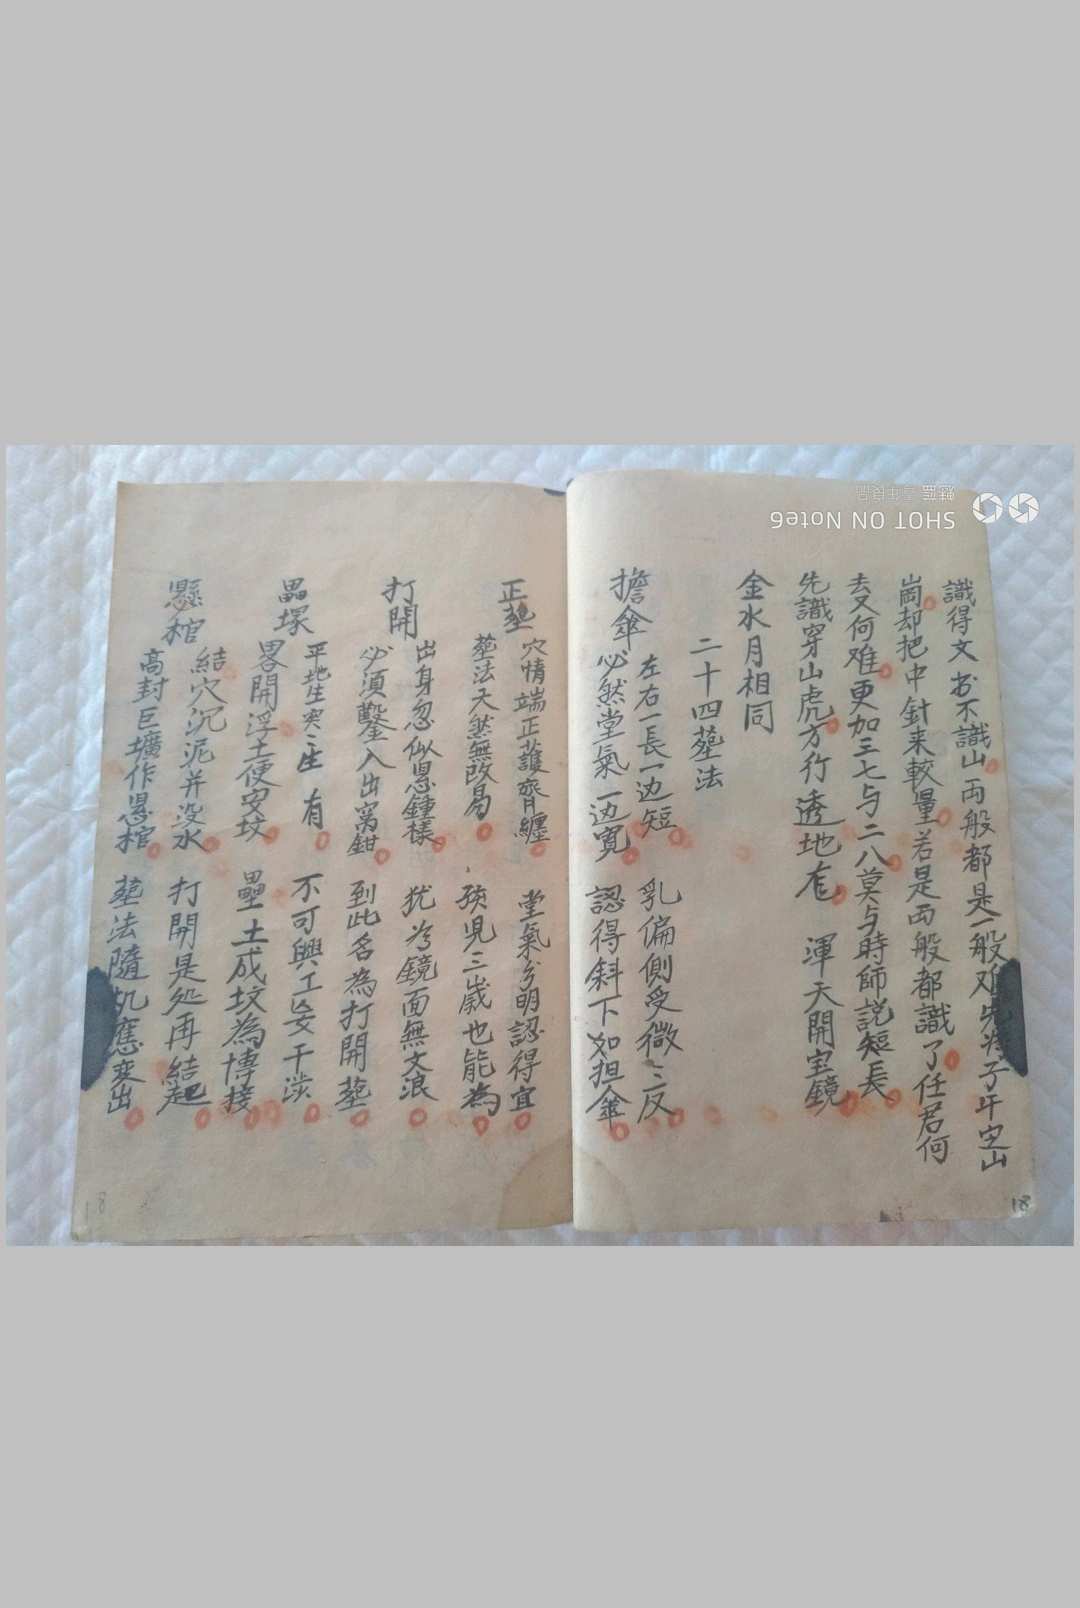 識得文书不識山両般都是一般难先为子午定山
崗却把中針来較量若是両般都識了任君何
去又何难更加三七与二八莫与時師説短長
先識穿山虎方行透地 渾天開宝鏡
金水月相同
二十四塟法
擔傘
左右一長一边短 乳偏側受微〻反
必然堂氣一边寛 認得斜下如担傘
正塟
穴情端正護齊纏 堂氣分明認得宜
塟法天然無改易 孩児三歳也能為
打開
出身忽似懸鍾樣 犹为鏡面無文浪
必須鑿入出窩鉗 到此名為打開塟
壘塚
平地生突〻生有 不可興工妄干涉
畧開浮土便安坟 壘土成坟為博接
懸棺
結穴沉泥并没水 打開是処再結起
高封巨壙作懸棺 塟法隨机應変出
18
18
SHOT ON Note6
魅蓝 青年良品